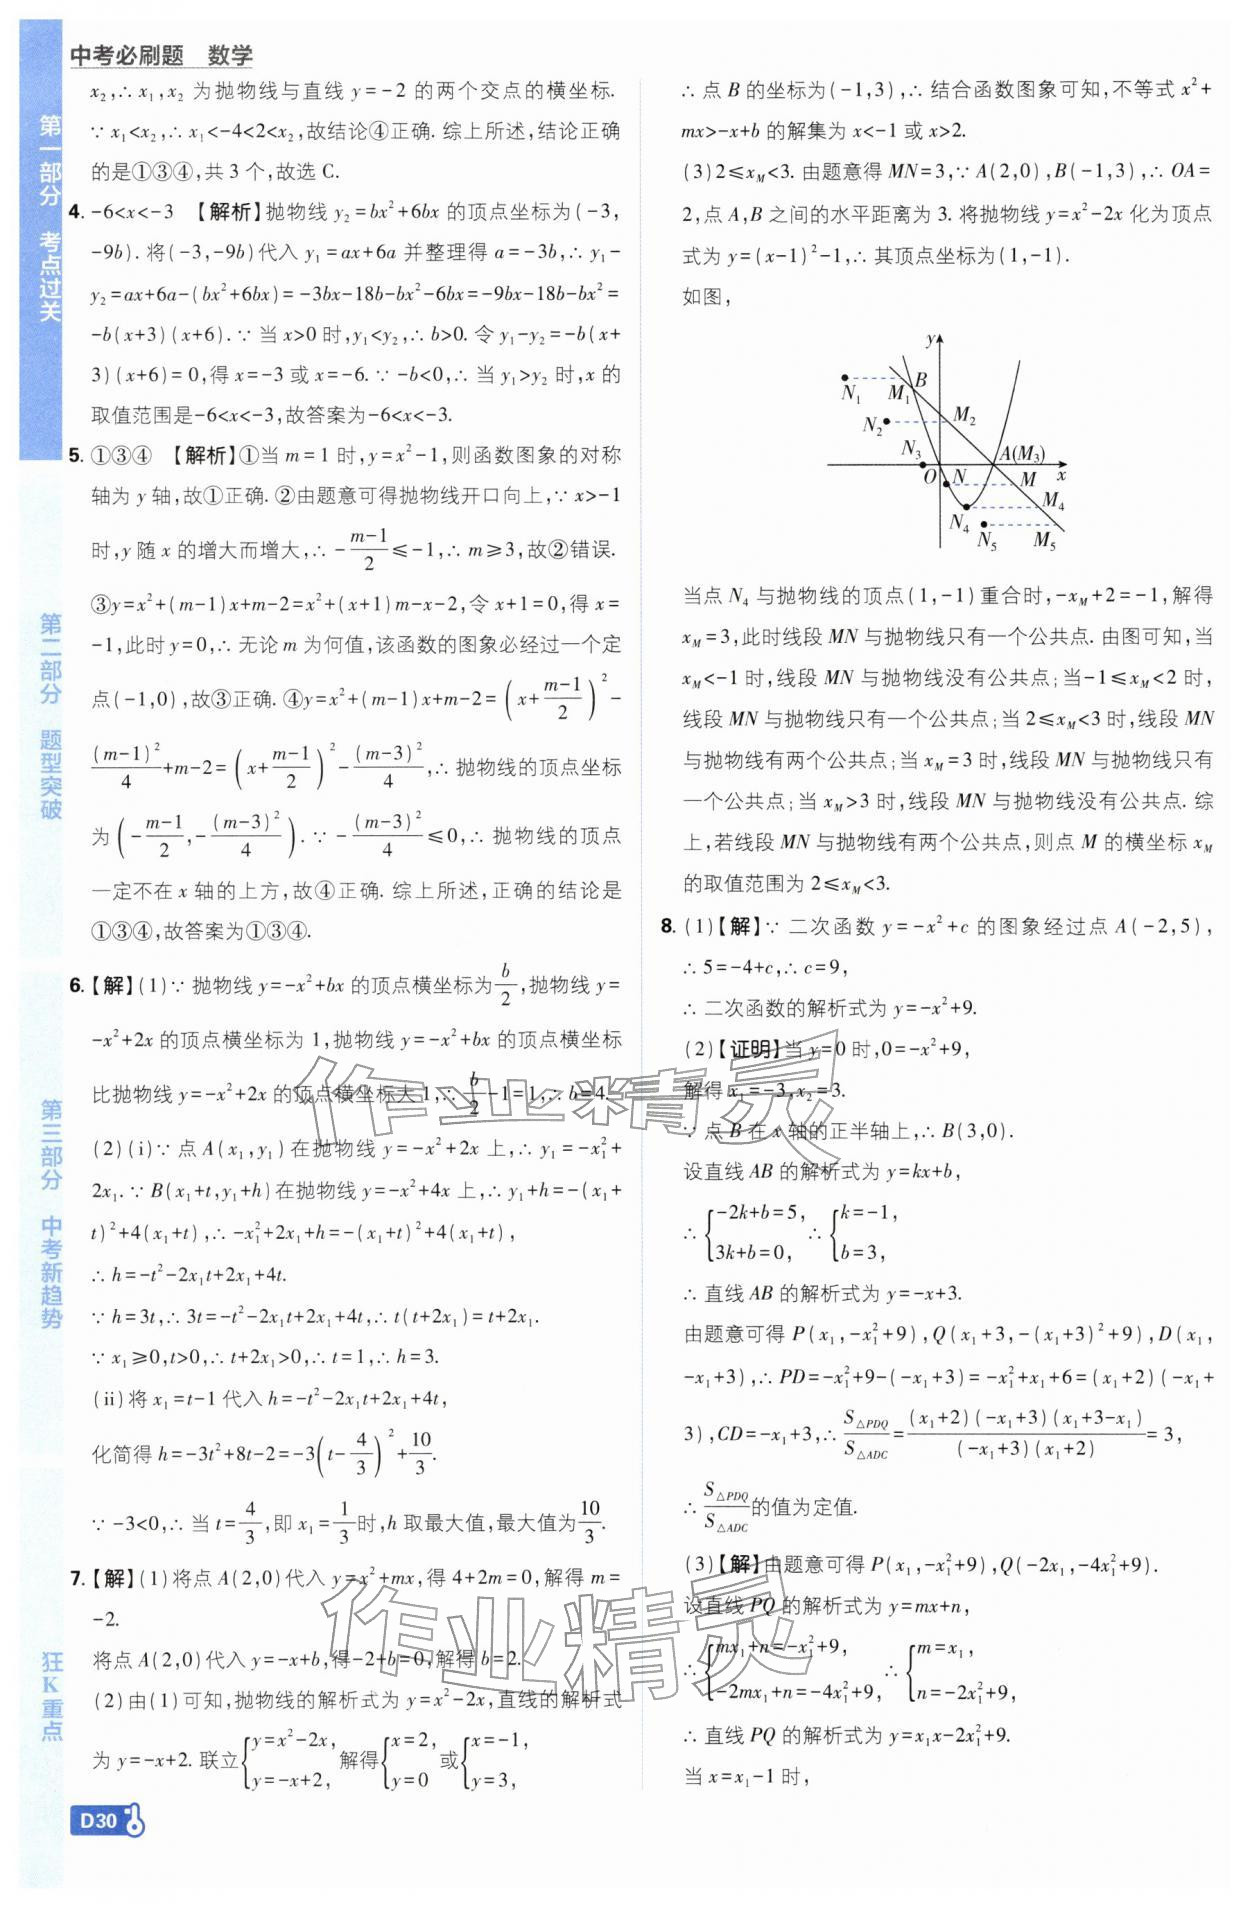 中考必刷题 数学
第一部分 考点过关
第二部分 题型突破
第三部分 中考新趋势
狂K重点
x₂,∴x₁,x₂ 为抛物线与直线 y=-2 的两个交点的横坐标.
∵x₁<x₂,∴x₁<-4<2<x₂,故结论④正确. 综上所述,结论正确
的是①③④,共 3 个,故选 C.
4. -6<x<-3 【解析】抛物线 y₂=bx²+6bx 的顶点坐标为(-3,
-9b). 将(-3,-9b)代入 y₁=ax+6a 并整理得 a=-3b,∴y₁-
y₂=ax+6a-(bx²+6bx)=-3bx-18b-bx²-6bx=-9bx-18b-bx²=
-b(x+3)(x+6). ∵当 x>0 时,y₁<y₂,∴b>0. 令 y₁-y₂=-b(x+
3)(x+6)=0,得 x=-3 或 x=-6. ∵-b<0,∴当 y₁>y₂ 时,x 的
取值范围是-6<x<-3,故答案为-6<x<-3.
5. ①③④ 【解析】①当 m=1 时,y=x²-1,则函数图象的对称
轴为 y 轴,故①正确. ②由题意可得抛物线开口向上,∵x>-1
时,y 随 x 的增大而增大,∴-(m-1)/2≤-1,∴m≥3,故②错误.
③y=x²+(m-1)x+m-2=x²+(x+1)m-x-2,令 x+1=0,得 x=
-1,此时 y=0,∴无论 m 为何值,该函数的图象必经过一个定
点(-1,0),故③正确. ④y=x²+(m-1)x+m-2=(x+(m-1)/2)²-
(m-1)²/4+m-2=(x+(m-1)/2)²-(m-3)²/4,∴抛物线的顶点坐标
为(-(m-1)/2,-(m-3)²/4). ∵-(m-3)²/4≤0,∴抛物线的顶点
一定不在 x 轴的上方,故④正确. 综上所述,正确的结论是
①③④,故答案为①③④.
6.【解】(1)∵抛物线 y=-x²+bx 的顶点横坐标为b/2,抛物线 y=
-x²+2x 的顶点横坐标为 1,抛物线 y=-x²+bx 的顶点横坐标
比抛物线 y=-x²+2x 的顶点横坐标大 1,∴b/2-1=1,∴b=4.
(2)(i)∵点 A(x₁,y₁)在抛物线 y=-x²+2x 上,∴y₁=-x₁²+
2x₁. ∵B(x₁+t,y₁+h)在抛物线 y=-x²+4x 上,∴y₁+h=-(x₁+
t)²+4(x₁+t),∴-x₁²+2x₁+h=-(x₁+t)²+4(x₁+t),
∴h=-t²-2x₁t+2x₁+4t.
∵h=3t,∴3t=-t²-2x₁t+2x₁+4t,∴t(t+2x₁)=t+2x₁.
∵x₁≥0,t>0,∴t+2x₁>0,∴t=1,∴h=3.
(ii)将 x₁=t-1 代入 h=-t²-2x₁t+2x₁+4t,
化简得 h=-3t²+8t-2=-3(t-4/3)²+10/3.
∵-3<0,∴当 t=4/3,即 x₁=1/3时,h 取最大值,最大值为10/3.
7.【解】(1)将点 A(2,0)代入 y=x²+mx,得 4+2m=0,解得 m=
-2.
将点 A(2,0)代入 y=-x+b,得-2+b=0,解得 b=2.
(2)由(1)可知,抛物线的解析式为 y=x²-2x,直线的解析式
为 y=-x+2. 联立{y=x²-2x, y=-x+2, 解得{x=2, y=0 或{x=-1, y=3,
D30
∴点 B 的坐标为(-1,3),∴结合函数图象可知,不等式 x²+
mx>-x+b 的解集为 x<-1 或 x>2.
(3)2≤x_M<3. 由题意得 MN=3,∵A(2,0),B(-1,3),∴OA=
2,点 A,B 之间的水平距离为 3. 将抛物线 y=x²-2x 化为顶点
式为 y=(x-1)²-1,∴其顶点坐标为(1,-1).
如图,
y
N₁ M₁ B
N₂ M₂
N₃ A(M₃)
O N M x
N₄ M₄
N₅ M₅
当点 N₄ 与抛物线的顶点(1,-1)重合时,-x_M+2=-1,解得
x_M=3,此时线段 MN 与抛物线只有一个公共点. 由图可知,当
x_M<-1 时,线段 MN 与抛物线没有公共点;当-1≤x_M<2 时,
线段 MN 与抛物线只有一个公共点;当 2≤x_M<3 时,线段 MN
与抛物线有两个公共点;当 x_M=3 时,线段 MN 与抛物线只有
一个公共点;当 x_M>3 时,线段 MN 与抛物线没有公共点. 综
上,若线段 MN 与抛物线有两个公共点,则点 M 的横坐标 x_M
的取值范围为 2≤x_M<3.
8.(1)【解】∵二次函数 y=-x²+c 的图象经过点 A(-2,5),
∴5=-4+c,∴c=9,
∴二次函数的解析式为 y=-x²+9.
(2)【证明】当 y=0 时,0=-x²+9,
解得 x₁=-3,x₂=3.
∵点 B 在 x 轴的正半轴上,∴B(3,0).
设直线 AB 的解析式为 y=kx+b,
∴{-2k+b=5, 3k+b=0, ∴{k=-1, b=3,
∴直线 AB 的解析式为 y=-x+3.
由题意可得 P(x₁,-x₁²+9),Q(x₁+3,-(x₁+3)²+9),D(x₁,
-x₁+3),∴PD=-x₁²+9-(-x₁+3)=-x₁²+x₁+6=(x₁+2)(-x₁+
3),CD=-x₁+3,∴S△PDQ/S△ADC=(x₁+2)(-x₁+3)(x₁+3-x₁)/(-x₁+3)(x₁+2)=3,
∴S△PDQ/S△ADC的值为定值.
(3)【解】由题意可得 P(x₁,-x₁²+9),Q(-2x₁,-4x₁²+9).
设直线 PQ 的解析式为 y=mx+n,
∴{mx₁+n=-x₁²+9, -2mx₁+n=-4x₁²+9, ∴{m=x₁, n=-2x₁²+9,
∴直线 PQ 的解析式为 y=x₁x-2x₁²+9.
当 x=x₁-1 时,
作业精灵
作业精灵